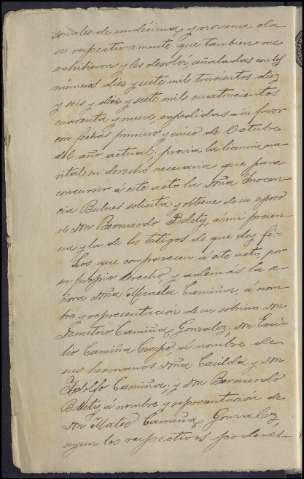 sonales de undécima y novena cla
se respectivamente que tambien me
exhibieron y les devolví, señaladas con los
números diez y siete mil trescientos diez
y seis y diez y siete mil cuatrocientos
cuarenta y nueve, expedidas a su favor
con fechas primero y cinco de Octubre
del año actual, previa la licencia ma
rital en derecho necesaria que para
concurrir á este acto la Doña Inocen
cia solicita y obtiene de su esposo
el Don Bernardo á mi presen
cia y la de los testigos de que doy fé.
Los que comparecen á este acto, por
su propio derecho, y además la se
ñora Doña Micaela Camiña, á nom
bre y representacion de su sobrino Don
Demetrio Camiña Gonzalez, Don Emi
lio Camiña Crespo á nombre de
sus hermanos Doña Casilda y Don
Adolfo Camiña, y Don Bernardo
á nombre y representacion de
Don Mateo Camiña Gonzalez,
segun los respectivos poderes